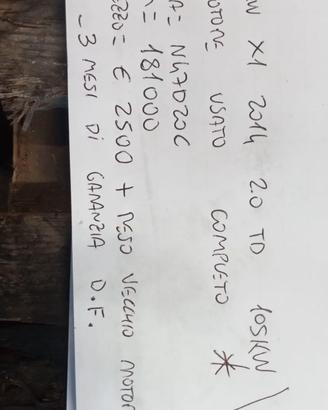 W X1 2014 2.0 TD 105KW
OTORE USATO COMPLETO *
A= N47D20C
= 181000
EZZO= € 2500 + RESO VECCHIO MOTOR
- 3 MESI DI GARANZIA D.F.